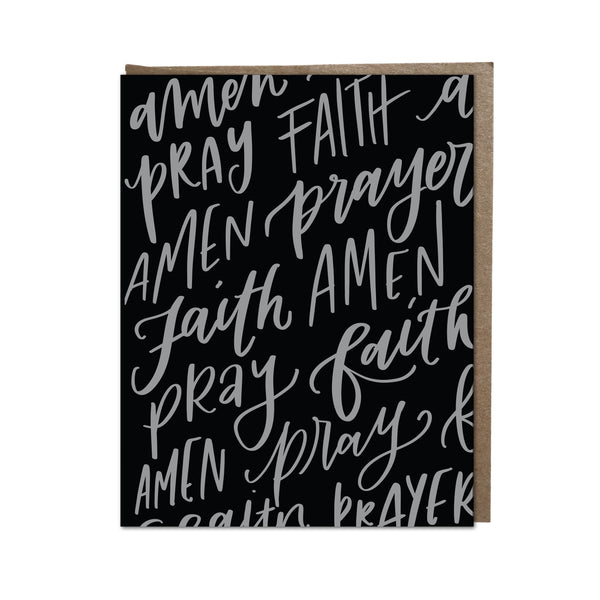 amen
PRAY FAITH a
AMEN prayer
faith AMEN
pray faith
AMEN pray f
faith PRAYER